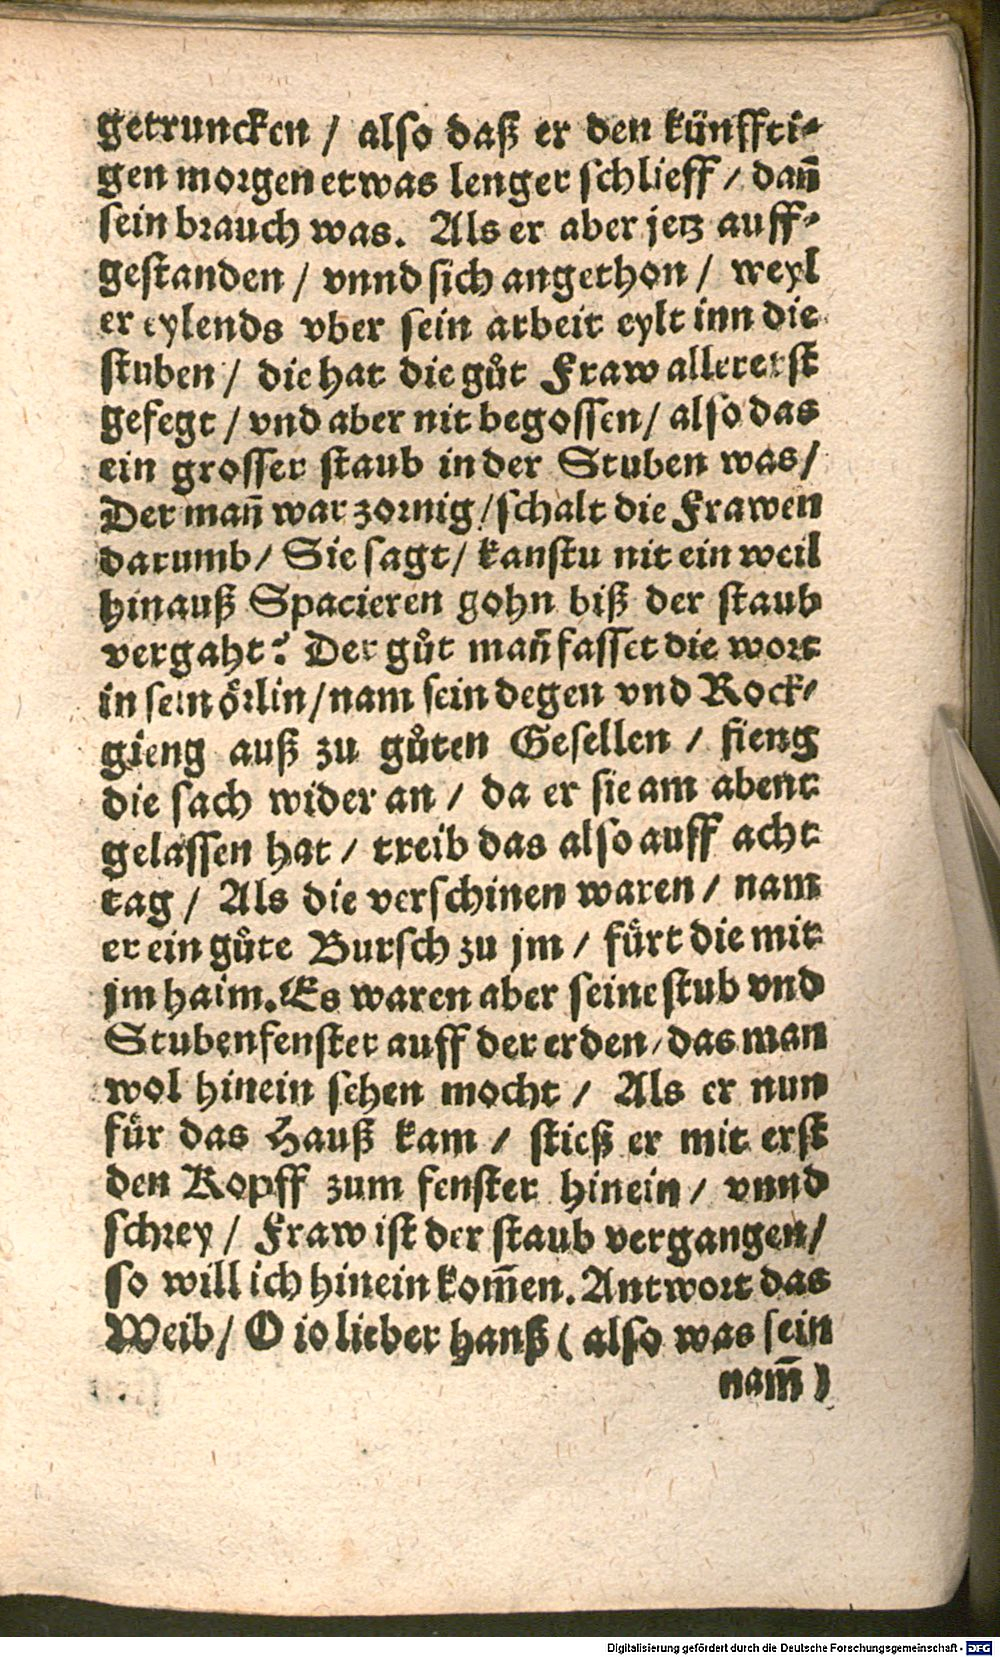 getruncken / also daß er den künffti-
gen morgen etwas lenger schlieff / dañ
sein brauch was. Als er aber jetz auff-
gestanden / vnnd sich angethon / weyl
er eylends vber sein arbeit eylt inn die
stuben / die hat die gůt Fraw allererst
gefegt / vnd aber nit begossen / also das
ein grosser staub in der Stuben was /
Der mañ war zornig / schalt die Frawen
darumb / Sie sagt / kanstu nit ein weil
hinauß Spacieren gohn biß der staub
vergaht? Der gůt mañ fasset die wort
in sein oͤrlin / nam sein degen vnd Rock /
gieng auß zu gůten Gesellen / fieng
die sach wider an / da er sie am abent
gelassen hat / treib das also auff acht
tag / Als die verschinen waren / nam
er ein gůte Bursch zu jm / fuͤrt die mit
jm haim. Es waren aber seine stub vnd
Stubenfenster auff der erden / das man
wol hinein sehen mocht / Als er nun
fuͤr das Hauß kam / stieß er mit erst
den Kopff zum fenster hinein / vnnd
schrey / Fraw ist der staub vergangen /
so will ich hinein kom̃en. Antwort das
Weib / O io lieber Hanß ( also was sein
nam̃ )
Digitalisierung gefördert durch die Deutsche Forschungsgemeinschaft - DFG